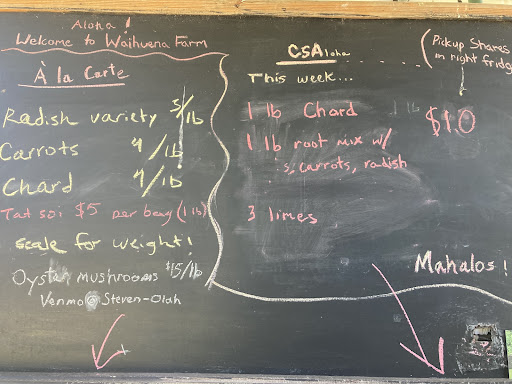 Aloha!
Welcome to Waihuena Farm
À la Carte
Radish variety 5/lb
Carrots 4/lb
Chard 4/lb
Tat soi $5 per bag (1 lb)
scale for weight!
Oyster mushrooms $15/lb
Venmo @ Steven-Olah
CSAloha
This week...
1 lb Chard 1 lb
1 lb root mix w/
carrots, radish
3 limes
Pickup Shares
in right fridge
$10
Mahalos!